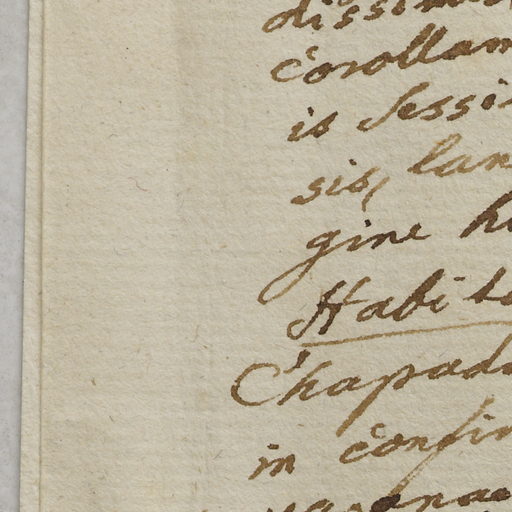 dissim
Corollam
is sessi
sis, lan
gine h
Habita
Chapad
in confin